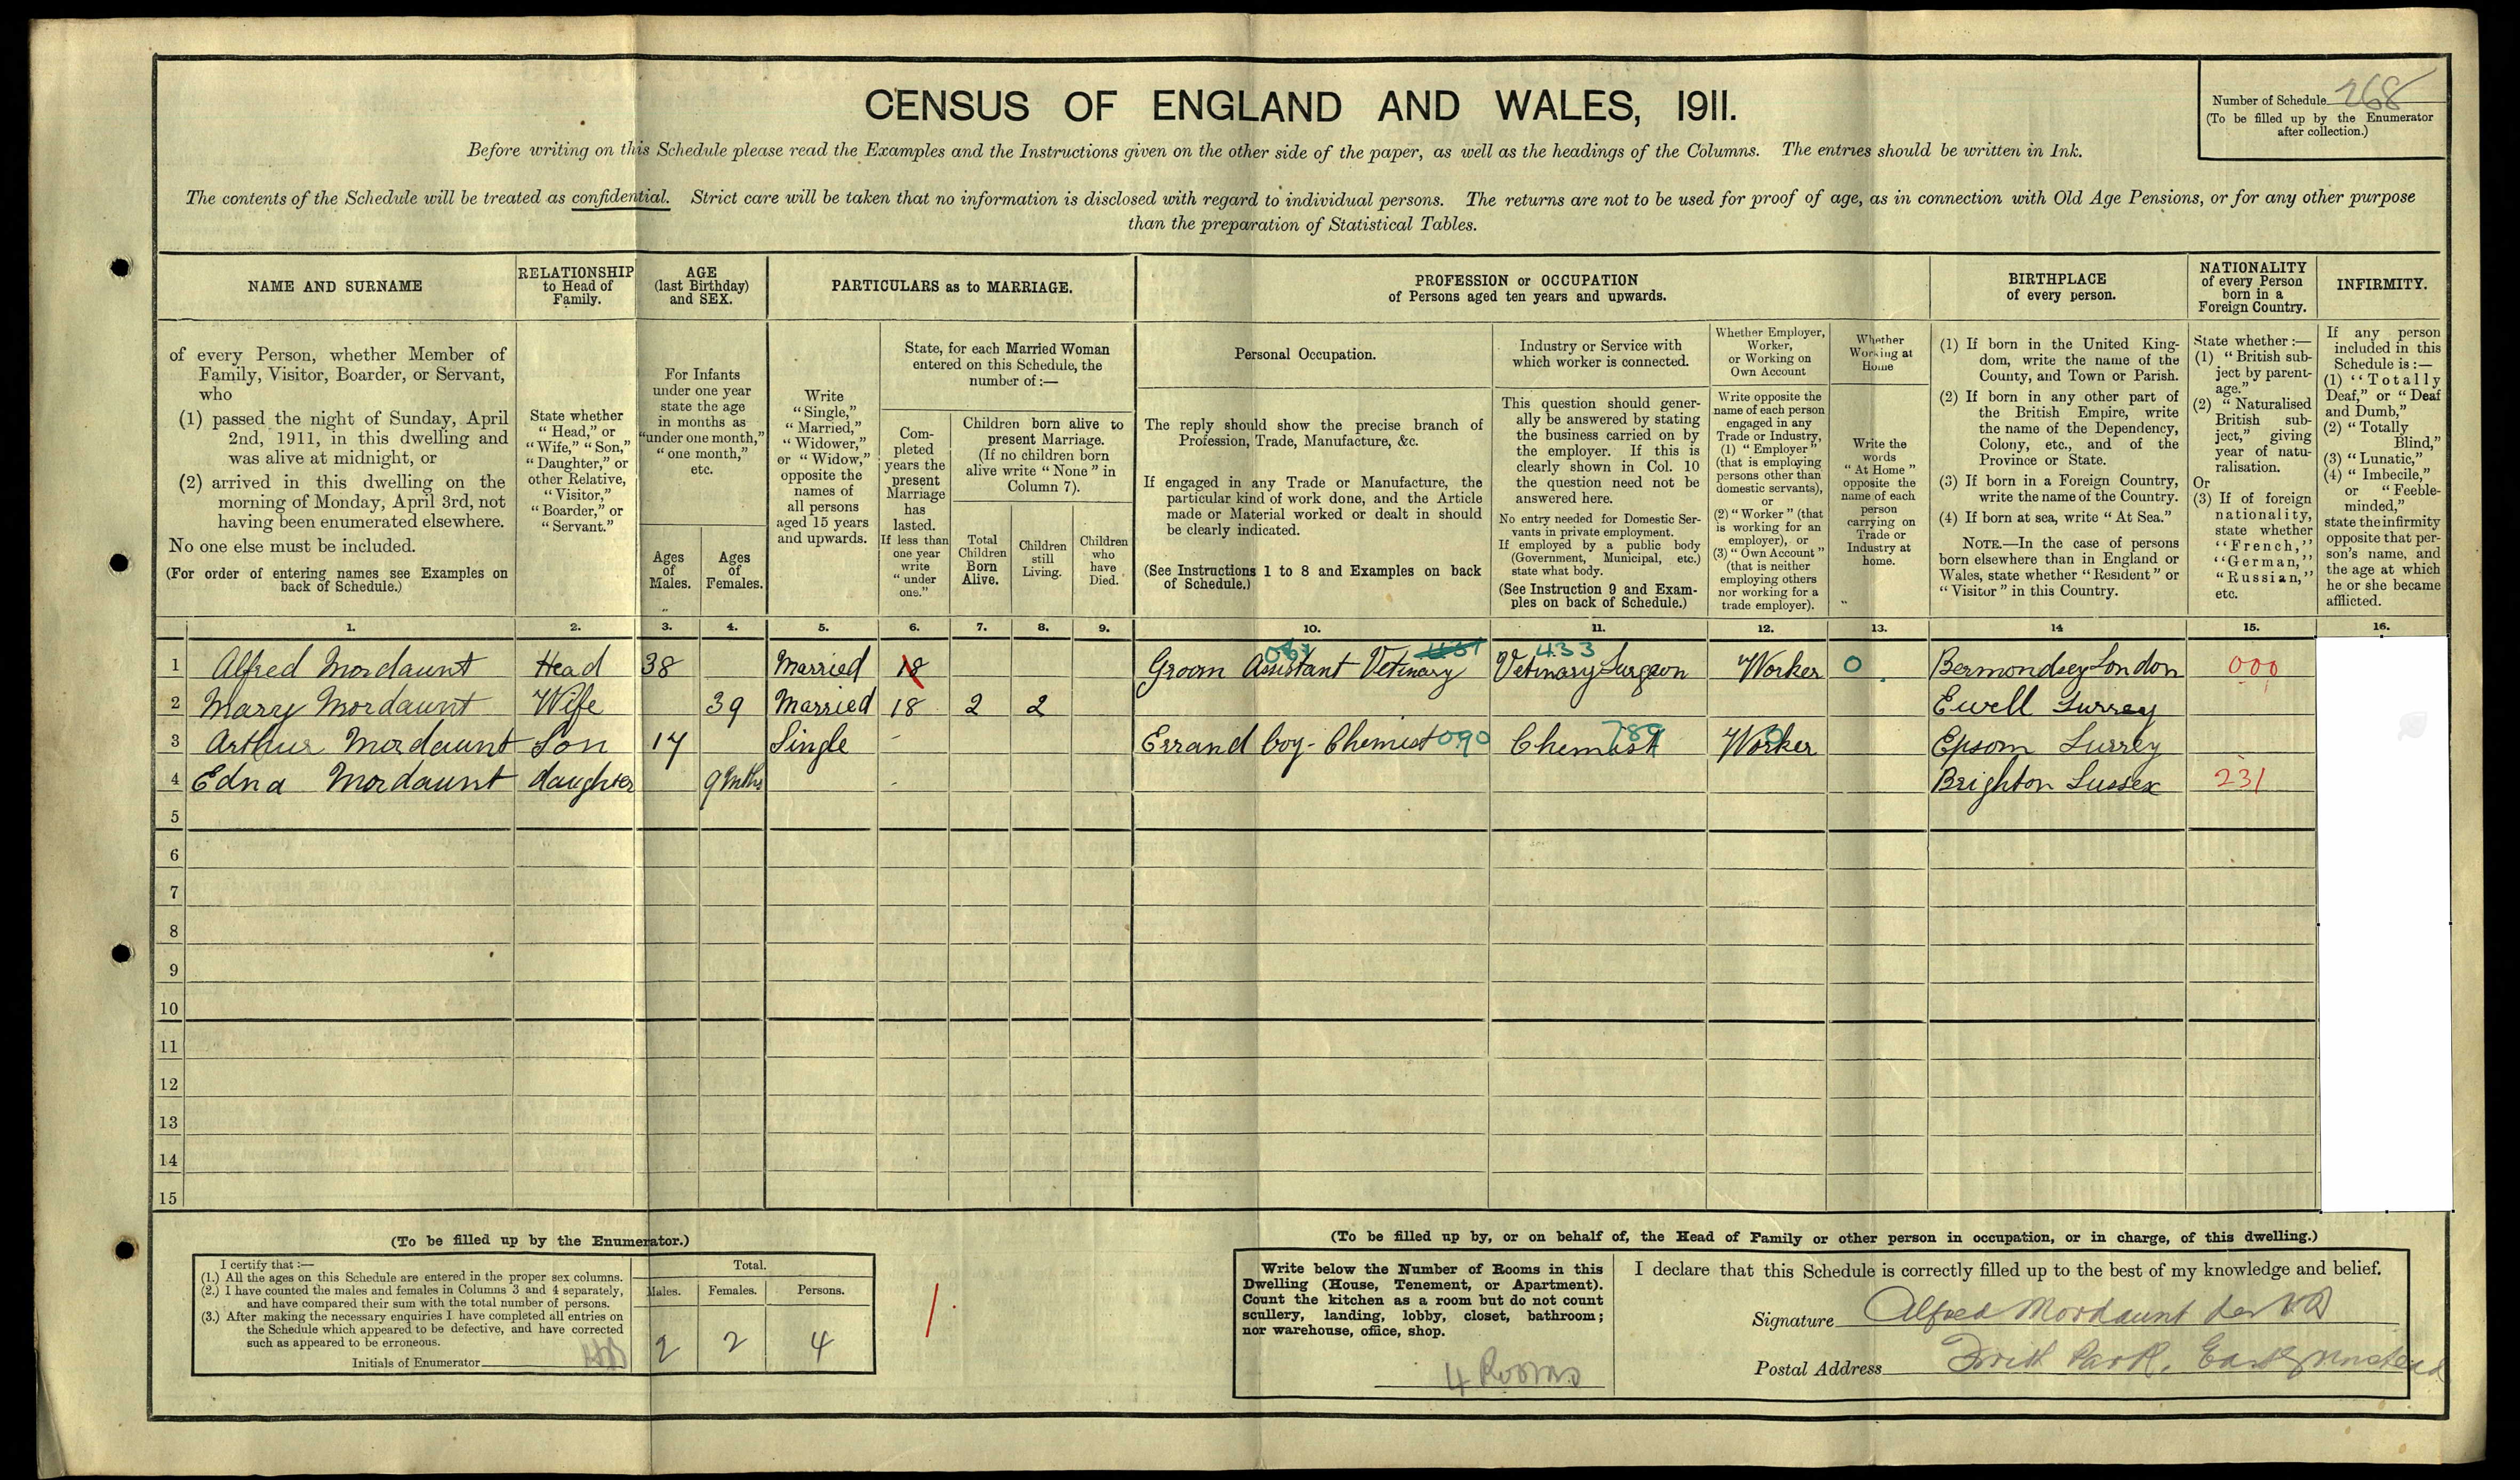 CENSUS OF ENGLAND AND WALES, 1911.
Number of Schedule 268
(To be filled up by the Enumerator
after collection.)
Before writing on this Schedule please read the Examples and the Instructions given on the other side of the paper, as well as the headings of the Columns. The entries should be written in Ink.
The contents of the Schedule will be treated as confidential. Strict care will be taken that no information is disclosed with regard to individual persons. The returns are not to be used for proof of age, as in connection with Old Age Pensions, or for any other purpose
than the preparation of Statistical Tables.
NAME AND SURNAME
of every Person, whether Member of
Family, Visitor, Boarder, or Servant,
who
(1) passed the night of Sunday, April
2nd, 1911, in this dwelling and
was alive at midnight, or
(2) arrived in this dwelling on the
morning of Monday, April 3rd, not
having been enumerated elsewhere.
No one else must be included.
(For order of entering names see Examples on
back of Schedule.)
RELATIONSHIP
to Head of
Family.
State whether
"Head," or
"Wife," "Son,"
"Daughter," or
other Relative,
"Visitor,"
"Boarder," or
"Servant."
AGE
(last Birthday)
and SEX.
For Infants
under one year
state the age
in months as
"under one month,"
"one month,"
etc.
Ages
of
Males.
Ages
of
Females.
PARTICULARS as to MARRIAGE.
Write
"Single,"
"Married,"
"Widower,"
or "Widow,"
opposite the
names of
all persons
aged 15 years
and upwards.
State, for each Married Woman
entered on this Schedule, the
number of:—
Com-
pleted
years the
present
Marriage
has
lasted.
If less than
one year
write
"under
one."
Children born alive to
present Marriage.
(If no children born
alive write "None" in
Column 7).
Total
Children
Born
Alive.
Children
still
Living.
Children
who
have
Died.
PROFESSION or OCCUPATION
of Persons aged ten years and upwards.
Personal Occupation.
The reply should show the precise branch of
Profession, Trade, Manufacture, &c.
If engaged in any Trade or Manufacture, the
particular kind of work done, and the Article
made or Material worked or dealt in should
be clearly indicated.
(See Instructions 1 to 8 and Examples on back
of Schedule.)
Industry or Service with
which worker is connected.
This question should gener-
ally be answered by stating
the business carried on by
the employer. If this is
clearly shown in Col. 10
the question need not be
answered here.
No entry needed for Domestic Ser-
vants in private employment.
If employed by a public body
(Government, Municipal, etc.)
state what body.
(See Instruction 9 and Exam-
ples on back of Schedule.)
Whether Employer,
Worker,
or Working on
Own Account
Write opposite the
name of each person
engaged in any
Trade or Industry,
(1) "Employer"
(that is employing
persons other than
domestic servants),
or
(2) "Worker" (that
is working for an
employer), or
(3) "Own Account"
(that is neither
employing others
nor working for a
trade employer).
Whether
Working at
Home
Write the
words
"At Home"
opposite the
name of each
person
carrying on
Trade or
Industry at
home.
BIRTHPLACE
of every person.
(1) If born in the United King-
dom, write the name of the
County, and Town or Parish.
(2) If born in any other part of
the British Empire, write
the name of the Dependency,
Colony, etc., and of the
Province or State.
(3) If born in a Foreign Country,
write the name of the Country.
(4) If born at sea, write "At Sea."
NOTE.—In the case of persons
born elsewhere than in England or
Wales, state whether "Resident" or
"Visitor" in this Country.
NATIONALITY
of every Person
born in a
Foreign Country.
State whether :—
(1) "British sub-
ject by parent-
age."
(2) "Naturalised
British sub-
ject," giving
year of natu-
ralisation.
Or
(3) If of foreign
nationality,
state whether
"French,"
"German,"
"Russian,"
etc.
INFIRMITY.
If any person
included in this
Schedule is :—
(1) "Totally
Deaf," or "Deaf
and Dumb,"
(2) "Totally
Blind,"
(3) "Lunatic,"
(4) "Imbecile,"
or "Feeble-
minded,"
state the infirmity
opposite that per-
son's name, and
the age at which
he or she became
afflicted.
1. 2. 3. 4. 5. 6. 7. 8. 9. 10. 11. 12. 13. 14 15. 16.
433
1 Alfred Mordaunt Head 38 Married 18 Groom Assistant Vetinary Vetinary Surgeon Worker 0 Bermondsey London 000
2 Mary Mordaunt Wife 39 Married 18 2 2 Ewell Surrey
3 Arthur Mordaunt Son 14 Single - Errand boy - Chemist 090 Chemist 789 Worker 0 Epsom Surrey
4 Edna Mordaunt daughter 9 Mths - Brighton Sussex 231
5
6
7
8
9
10
11
12
13
14
15
(To be filled up by the Enumerator.)
I certify that :—
(1.) All the ages on this Schedule are entered in the proper sex columns.
(2.) I have counted the males and females in Columns 3 and 4 separately,
and have compared their sum with the total number of persons.
(3.) After making the necessary enquiries I have completed all entries on
the Schedule which appeared to be defective, and have corrected
such as appeared to be erroneous.
Initials of Enumerator
Total.
Males. Females. Persons.
2 2 4
(To be filled up by, or on behalf of, the Head of Family or other person in occupation, or in charge, of this dwelling.)
Write below the Number of Rooms in this
Dwelling (House, Tenement, or Apartment).
Count the kitchen as a room but do not count
scullery, landing, lobby, closet, bathroom;
nor warehouse, office, shop.
4 Rooms
I declare that this Schedule is correctly filled up to the best of my knowledge and belief.
Signature Alfred Mordaunt
Postal Address Park, East Grinstead